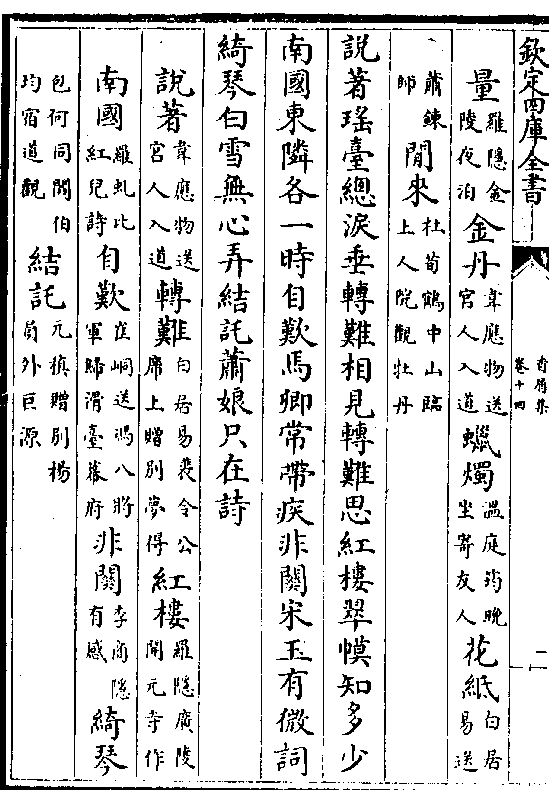 欽定四庫全書
香屑集
卷十四
二
量羅隱金陵夜泊金丹韋應物送宫人入道蠟燭溫庭筠晚坐寄友人花紙白居易送
蕭鍊師閒來杜荀鶴中山臨上人院觀牡丹
說著瑤臺總淚垂轉難相見轉難思紅樓翠幙知多少
南國東隣各一時自歎馬卿常帶疾非關宋玉有微詞
綺琴白雪無心弄結託蕭娘只在詩
說著韋應物送宫人入道轉難白居易裴令公席上贈別夢得紅樓羅隱廣陵開元寺作
南國羅虬比紅兒詩自歎崔峒送馮八將軍歸滑臺幕府非關李商隱有感綺琴
包何同閻伯均宿道觀結託元稹贈別楊員外巨源